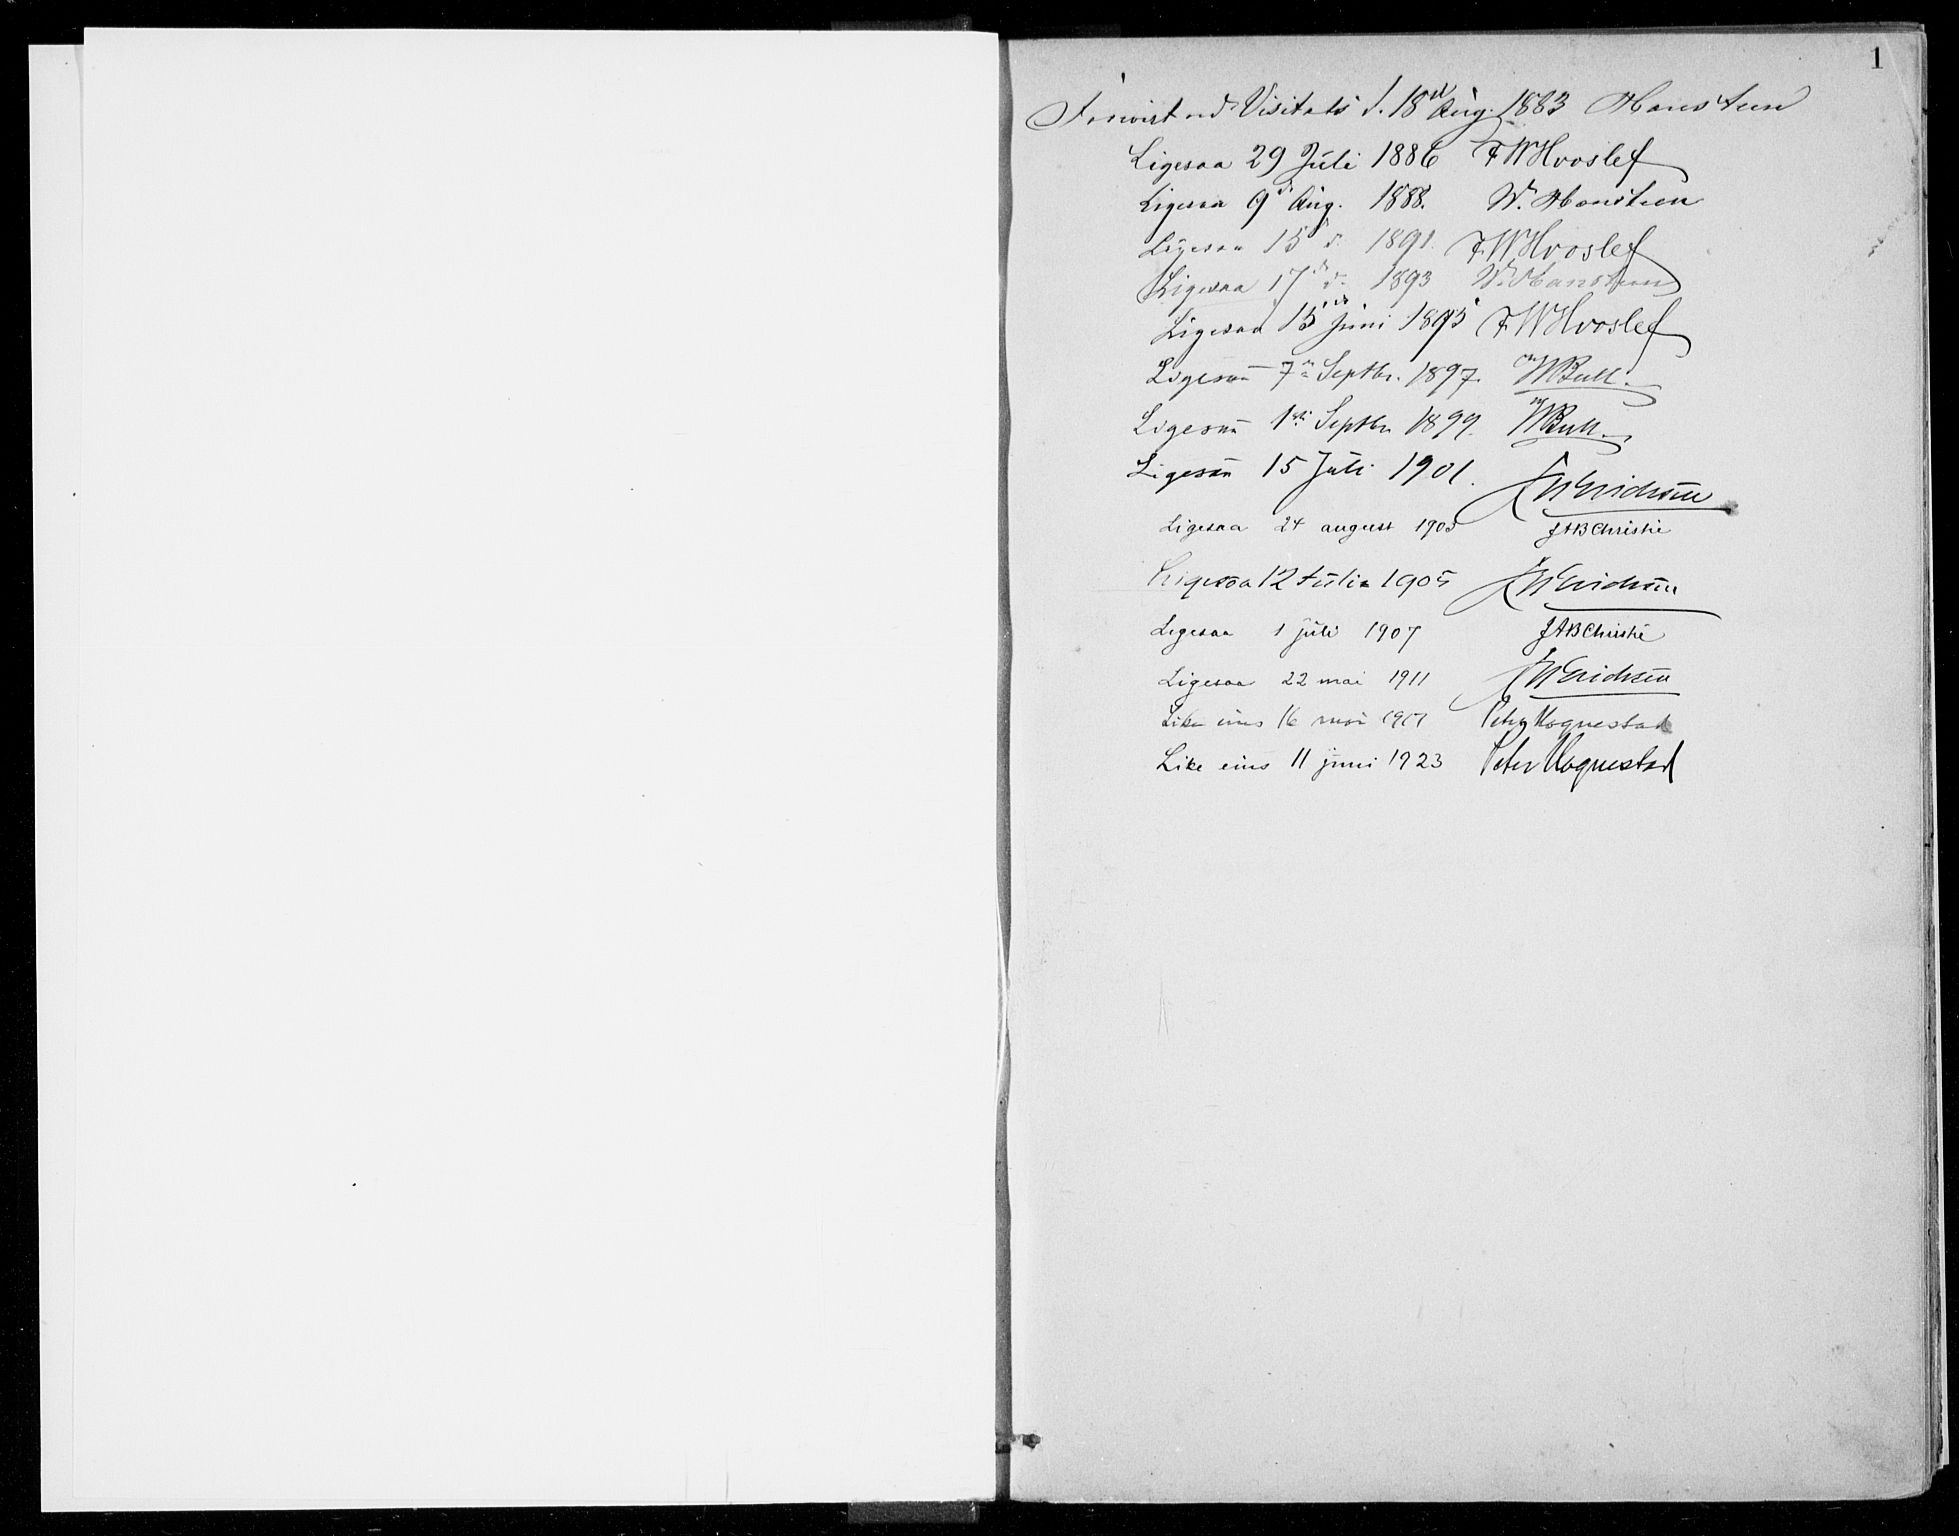 1
Forevist ved Visitats d. 18de Aug. 1883 Hansteen
Ligesaa 29 Juli 1886 FWHvoslef
Ligesaa 9de Aug. 1888. W. Hansteen
Ligesaa 15 d. 1891. FWHvoslef
Ligesaa 17de d. 1893 W. Hansteen
Ligesaa 15de Juni 1895 FWHvoslef
Ligesaa 7de Septbr. 1897. WBull.
Ligesaa 1ste Septbr 1899. WBull.
Ligesaa 15 Juli 1901. Erichsen
Ligesaa 24 august 1903 JABChristie
Ligesaa 12 Juli 1905 Erichsen
Ligesaa 1 juli 1907 JABChristie
Ligesaa 22 mai 1911 Erichsen
Like eins 16 mai Peter Hognestad
Like eins 11 juni 1923 Peter Hognestad